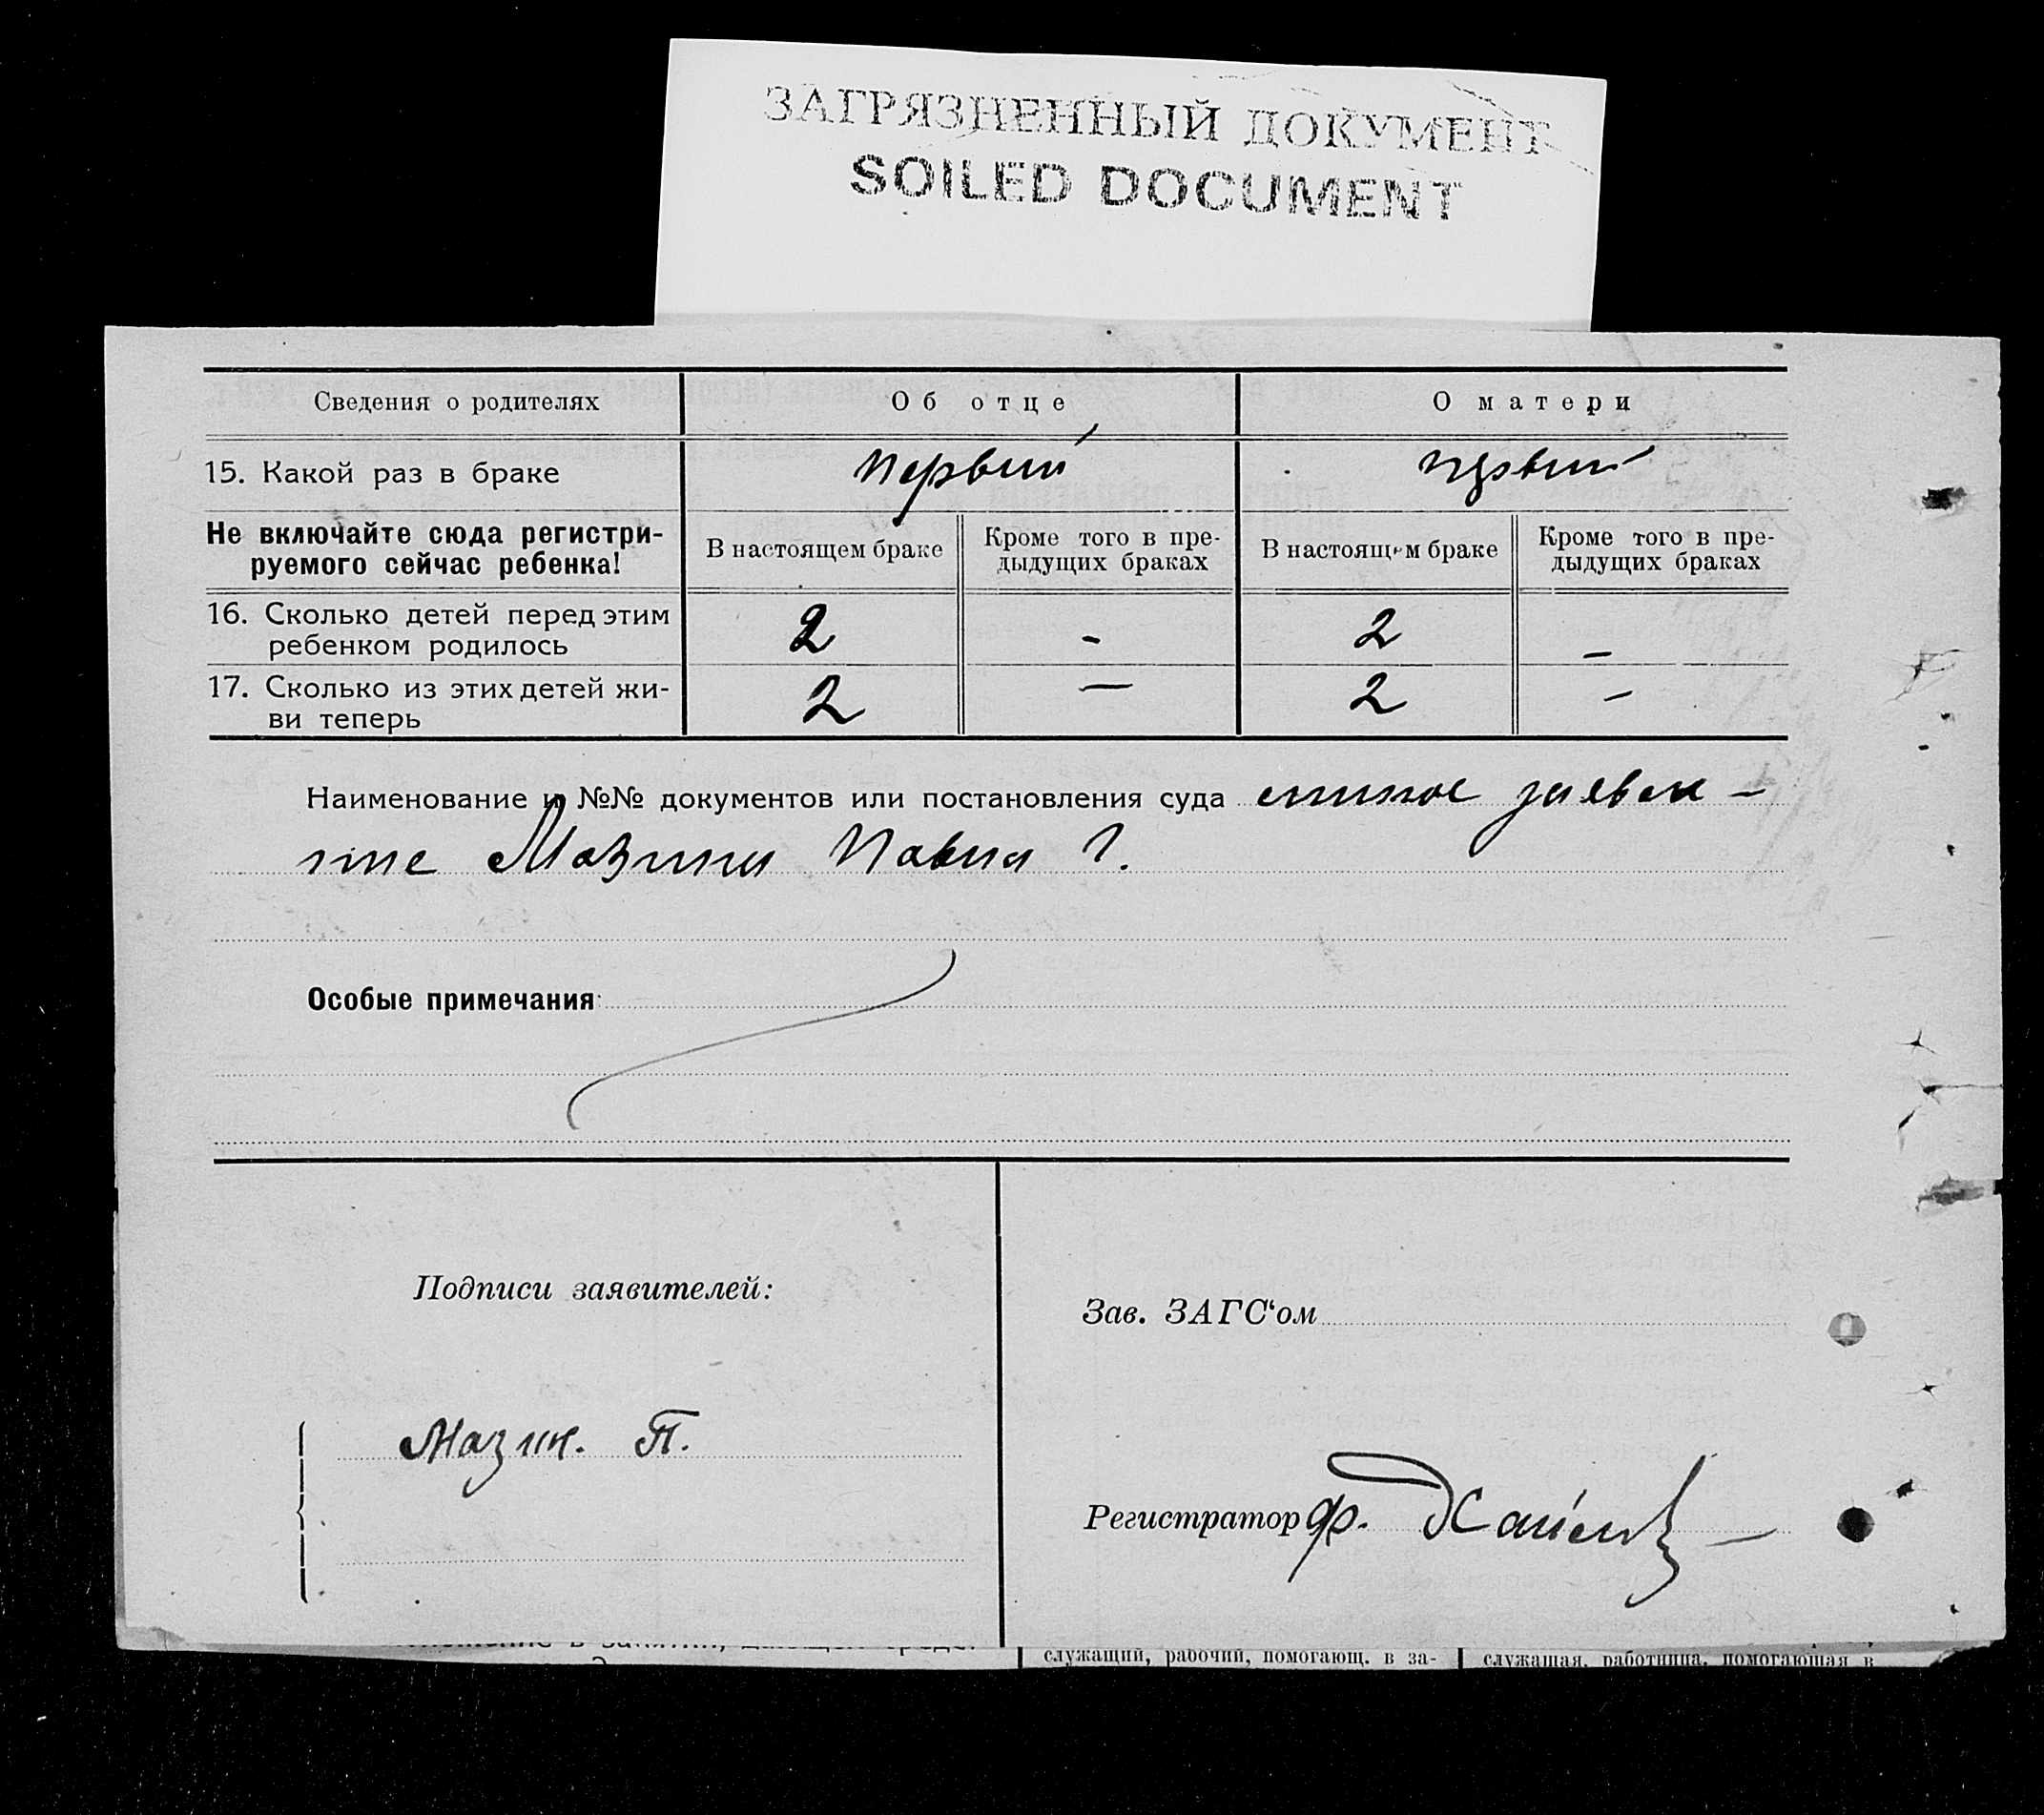 ЗАГРЯЗНЕННЫЙ ДОКУМЕНТ
SOILED DOCUMENT
Сведения о родителях
Об отце
О матери
15. Какой раз в браке
первый
первый
Не включайте сюда регистри-
руемого сейчас ребенка!
В настоящем браке
Кроме того в пре-
дыдущих браках
В настоящем браке
Кроме того в пре-
дыдущих браках
16. Сколько детей перед этим
ребенком родилось
2
-
2
-
17. Сколько из этих детей жи-
ви теперь
2
-
2
-
Наименование и №№ документов или постановления суда личное заявле-
ние Мазина Павла Г.
Особые примечания
Подписи заявителей:
Зав. ЗАГС‘ом
Мазин. П.
Регистратор Ф.
служащий, рабочий, помогающ. в за-
служащая, работница, помогающая в